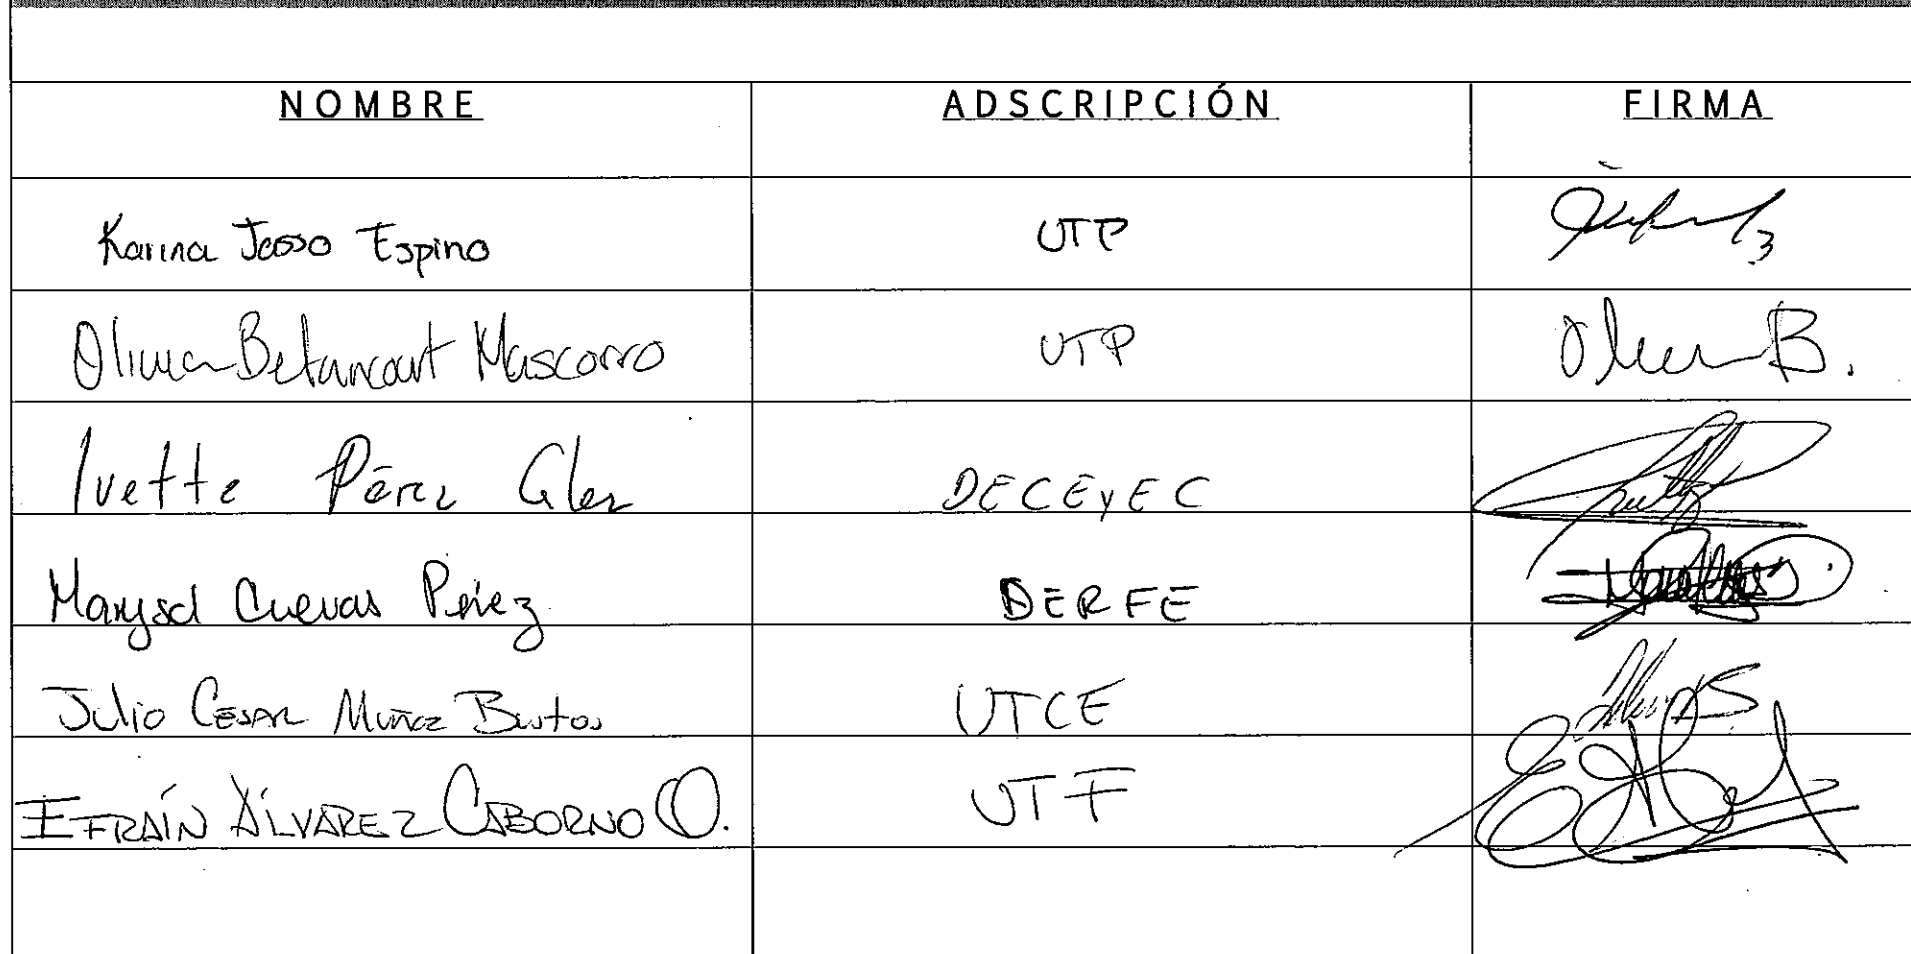 NOMBRE ADSCRIPCIÓN FIRMA
Karina Jasso Espino UTP
Olivia Betancourt Mascorro UTP Olivia B.
Ivette Pérez Glez DECEyEC
Marysol Cuevas Pérez DERFE
Julio Cesar Muñoz Bustos UTCE
EFRAÍN ÁLVAREZ CABORNO O. UTF